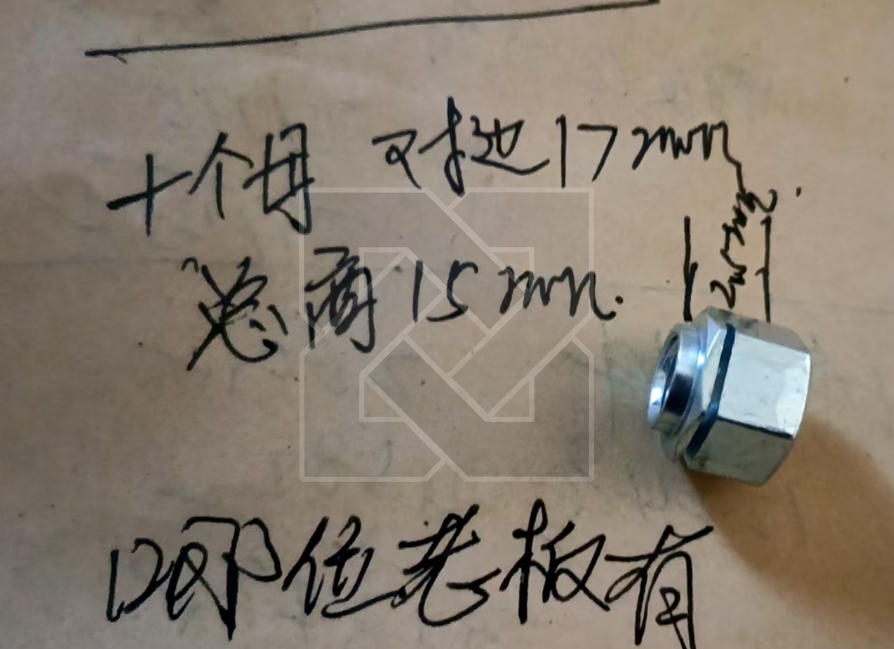 十个母 对边17mm
总高15mm.
哪位老板有